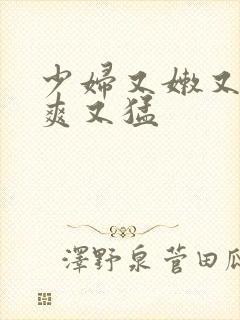 少婦又嫩又
爽又猛
澤野泉菅田瓜